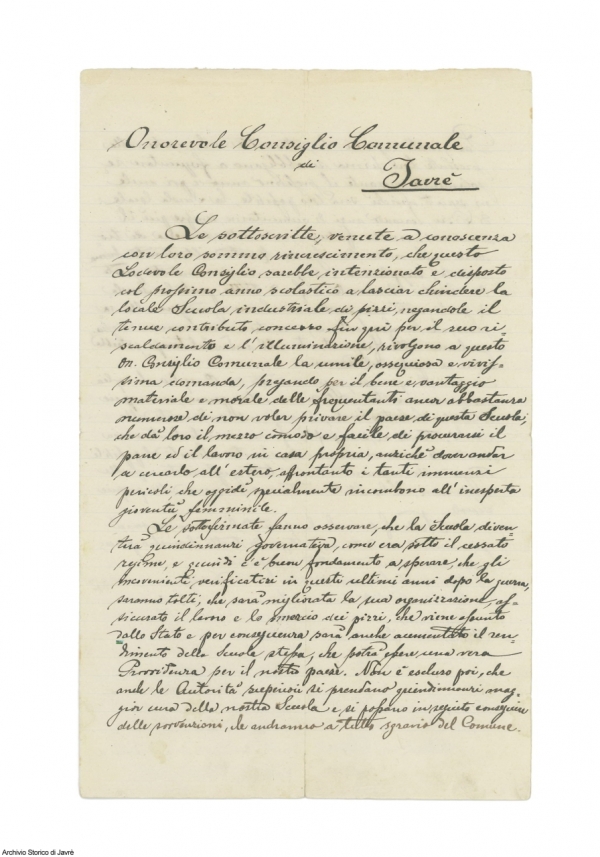 Onorevole Consiglio Comunale
di
Javrè
Le sottoscritte, venute a conoscenza
con loro sommo rincrescimento, che questo
Lodevole Consiglio sarebbe intenzionato e disposto
col prossimo anno scolastico a lasciar chiudere la
locale Scuola industriale di pizzi, negandole il
tenue contributo concesso fin qui per il suo ri-
scaldamento e l'illuminazione, rivolgono a questo
On. Consiglio Comunale la umile, ossequiosa e vivis-
sima domanda, pregando per il bene e vantaggio
materiale e morale delle frequentanti ancor abbastanza
numerose di non voler privare il paese di questa Scuola,
che dà loro il mezzo comodo e facile, di procurarsi il
pane ed il lavoro in casa propria, anziché dover andar
a cercarlo all'estero, affrontanto i tanti immensi
pericoli che oggidì specialmente incombono all'inesperta
gioventù femminile.
Le sottofirmate fanno osservare, che la Scuola diven-
terà quindinnanzi governativa, come era sotto il cessato
regime, e quindi c'è buon fondamento a sperare, che gli
inconvenienti, verificatisi in questi ultimi anni dopo la guerra,
saranno tolti, che sarà migliorata la sua organizzazione, as-
sicurato il lavoro e lo smercio dei pizzi, che viene assunto
dallo Stato e per conseguenza sarà anche aumentato il ren-
dimento della Scuola stessa, che potrà essere una vera
Provvidenza per il nostro paese. Non è escluso poi, che
anche le Autorità superiori si prendano quindinnanzi mag-
gior cura della nostra Scuola e si possano in seguito conseguire
delle sovvenzioni, che andranno a tutto sgravio del Comune.
Archivio Storico di Javrè